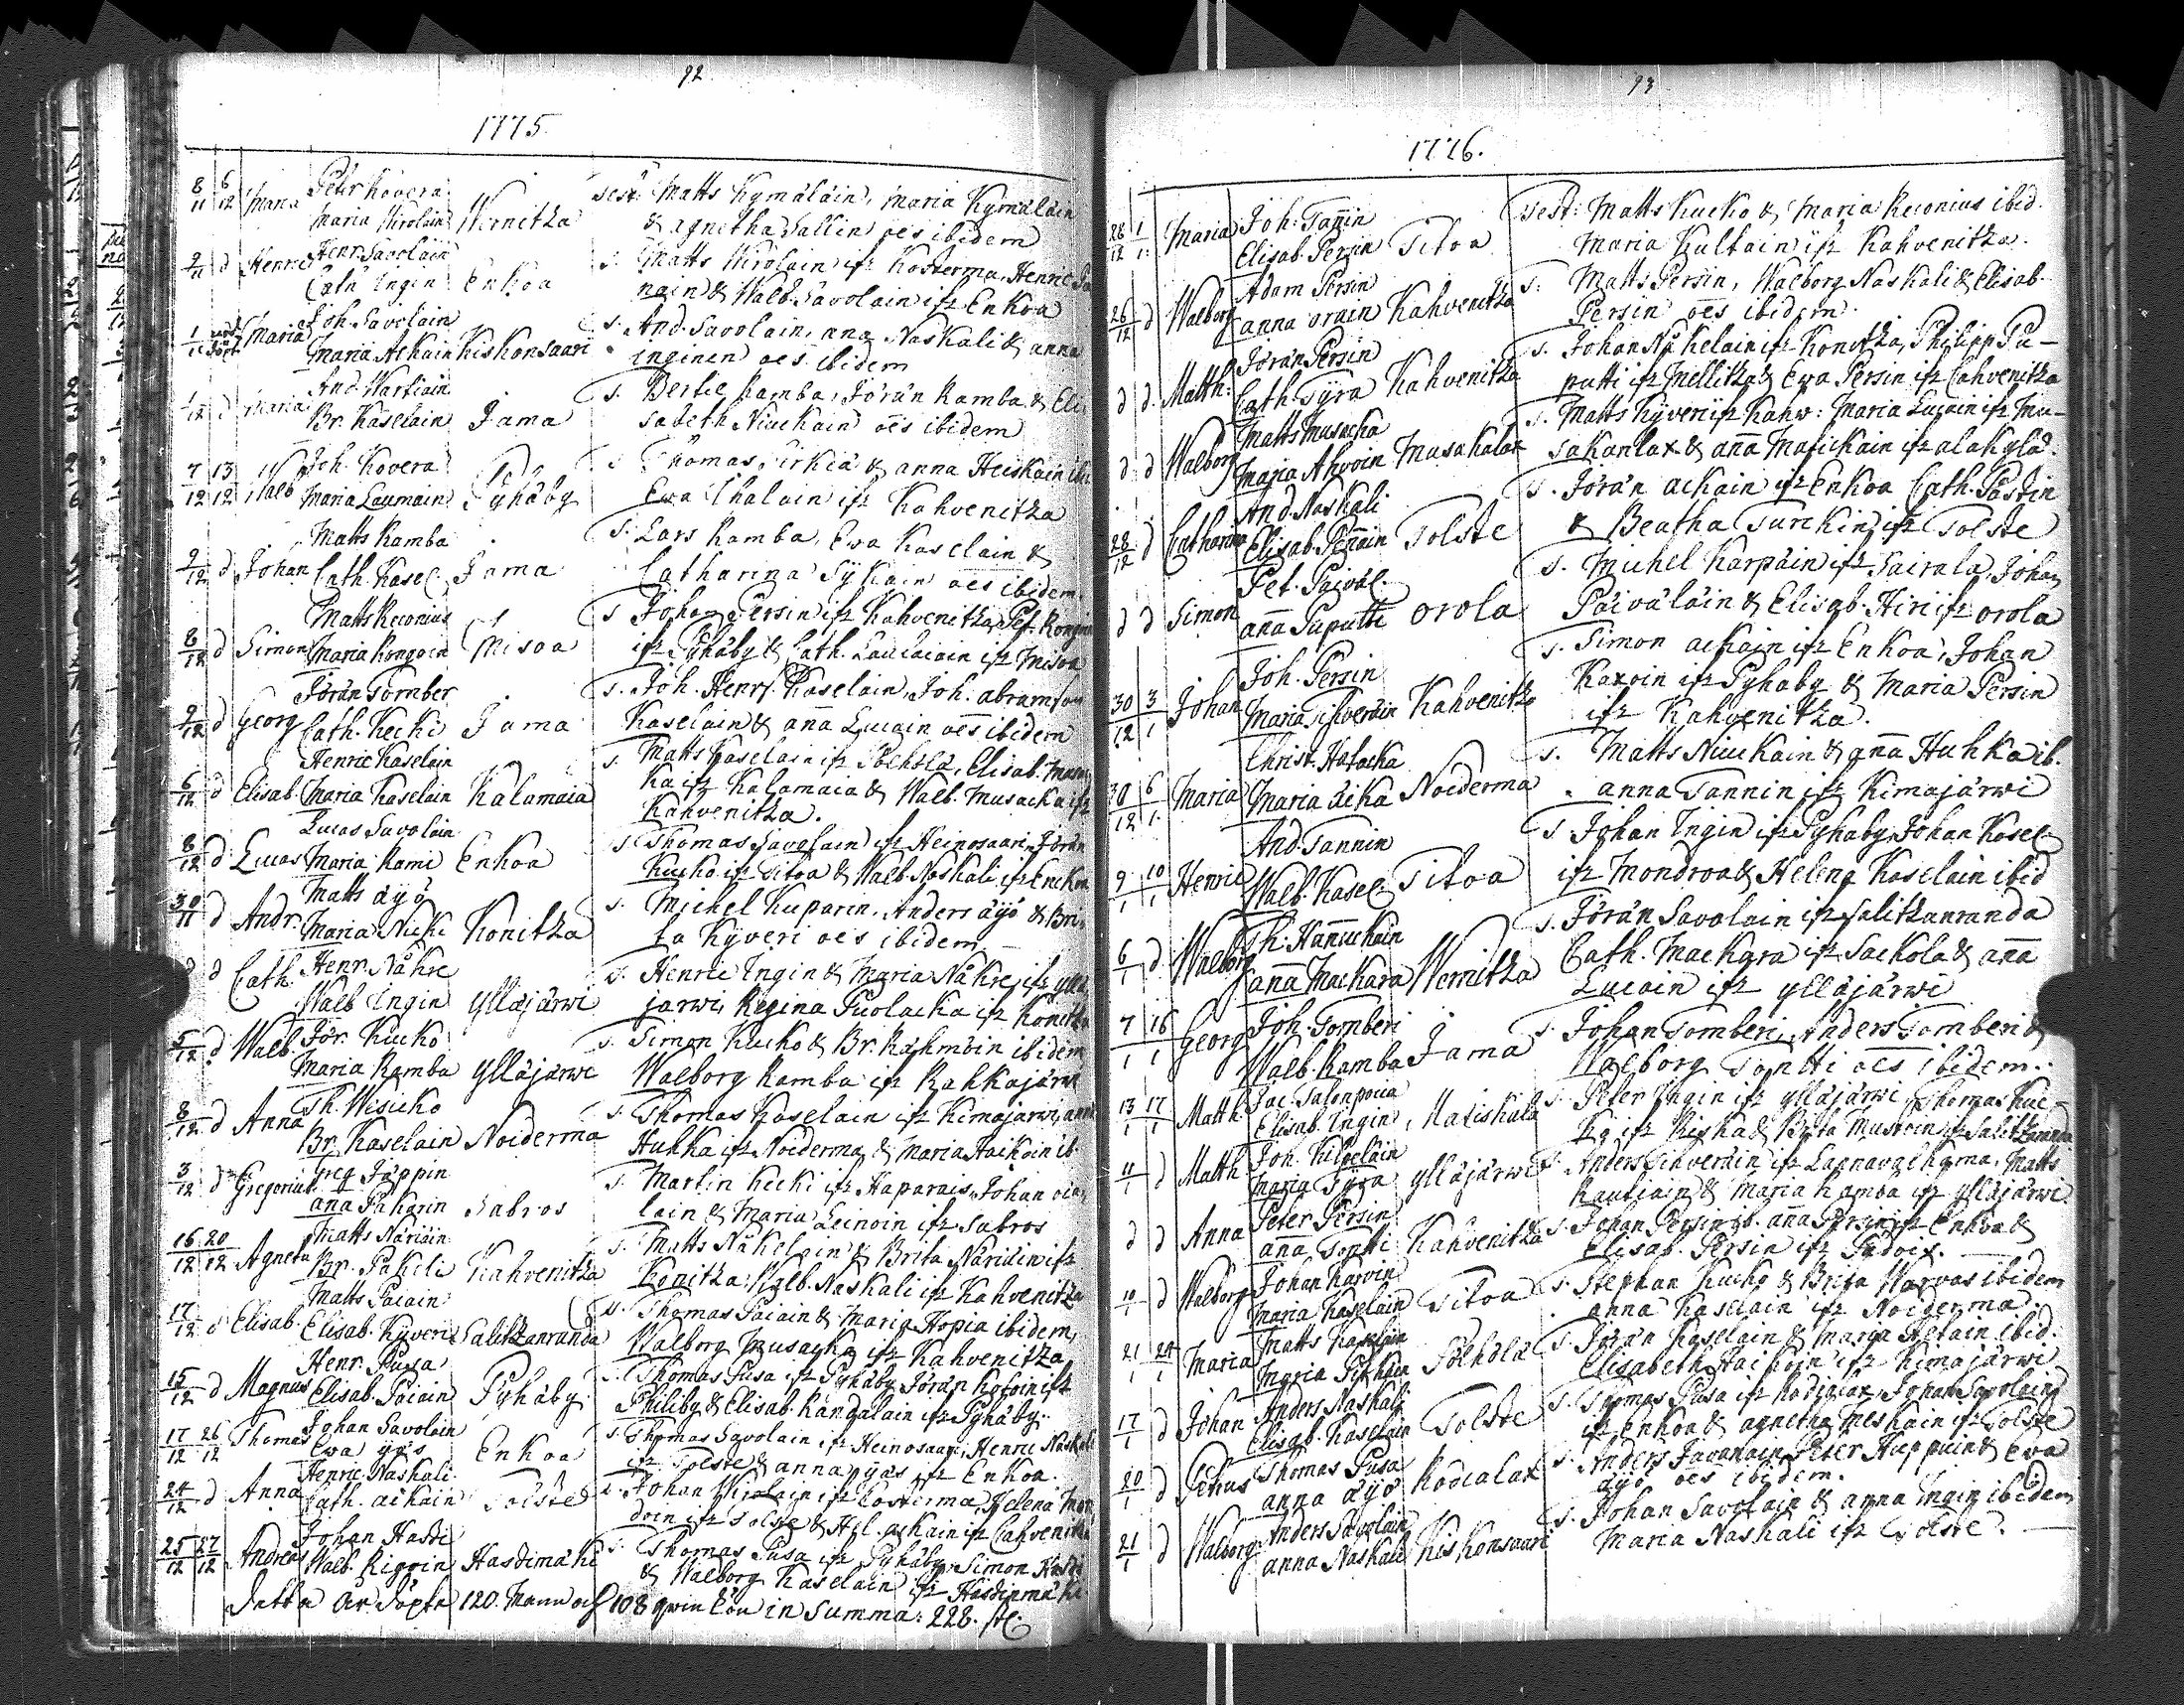 92
1775.
8/11 6/12 Maria Petr Kovera
Maria Wirolain Wernitza
Test: Matts Kymäläin, Maria Kymäläin
& agnetha Sallin oes ibidem
9/11 d Henric Henr. Savolain
Cath Ingin Enkoa
s. Matts Wirolain ifr Kosterma, Henric
nain & Walb. Savolain ifr Enkoa
1/11 Maria Joh. Savolain
Maria Ackain Kiskonsaari
s. And. Savolain, ana Naskali & anna
inginen oes ibidem
1/12 d Maria And. Wartiain
Br. Kaselain Jama
s. Bertil Ramba, Jöran Ramba & Eli
sabeth Niuckain oes ibidem
7/12 13/12 Walb Joh. Kovera
Maria Laumain Pyhäby
s Thomas Sirkiä & anna Heiskain
Ewa Ihalain ifr Kahvenitza
9/12 d Johan Matts Ramba
Cath. Kasel. Jama
s. Lars Ramba, Ewa Kaselain &
Catharina Sykäin oes ibidem.
8/12 d Simon Matts Reconius
Maria Rongoin Misoa
s Johan Persin ifr Kahvenitza, Pet. Rongoin
ifr Pyhäby & Cath. Lauluain ifr Misoa
9/12 d Georg Jöran Tomber
Cath. Kecki Jama
s. Joh. Henrs. Kaselain, Joh. abramson
Kaselain & ana Lucain oes ibidem
6/12 d Elisab. Henric Kaselain
Maria Kaselain Kalamaia
s. Matts Kaselain ifr Pöehölä, Elisab. Musa
ka ifr Kalamaia & Walb. Musacka ifr
Kahvenitza.
8/12 d Lucas Lucas Savolain
Maria Rami Enkoa
s Thomas Savolain ifr Heinosaari, Jöran
Kucko ifr Titoa & Walb. Naskali ifr Enkoa
30/11 d Andr. Matts äyö
Maria Nicki Konitza
s. Michel Kuparin, Anders äyö & Bri-
ta Kyveri oes ibidem
d d Cath. Henr. Nåkre
Walb Ingin Ylläjärwi
s. Henric Ingin & Maria Nåkre ifr Yllä
järwi, Regina Puolacka ifr Konitza
5/12 d Walb. Jör. Kucko
Maria Ramba Ylläjärwi
s. Simon Kucko & Br. Rähmöin ibidem
Walborg Ramba ifr Kahkajärwi
8/12 d Anna Th. Wisicko
Br. Kaselain Noiderma
s. Thomas Kaselain ifr Kimajärwi, anna
Huhka ifr Noiderma & Maria Haikoin ib.
3/12 d Gregorius Greg Jäppin
ana Pakarin Sabros
s. Martin Kecki ifr Haparais, Johan
lain & Maria Leinoin ifr Sabros
16/12 20/12 Agneta Matts Näriäin
Br. Pakeli Kahvenitza
s. Matts Nåkelain & Brita Näriäin ifr
Konitza, Walb. Naskali ifr Kahvenitza
17/12 d Elisab. Matts Paiain
Elisab. Kyveri Salitzanranda
s. Thomas Paiain & Maria Hopia ibidem,
Walborg Musacka ifr Kahvenitza
15/12 d Magnus Henr. Pusa
Elisab. Paiain Pyhäby
s. Thomas Pusa ifr Pyhäby, Jöran Kokoin ifr
Philiby & Elisab. Rangalain ifr Pyhäby.
17/12 26/12 Thomas Johan Savolain
Ewa äyös Enkoa
s. Thomas Savolain ifr Heinosaari, Henric Naskali
ifr Tolste & anna äyös ifr Enkoa.
24/12 d Anna Henric Naskali
Cath. ackain Tolste
s. Johan Wirolain ifr Kosterma, Helena Mon
droin ifr Tolste & Hel. ackain ifr Cahvenitza
25/12 27/12 Andreas Johan Hasdi
Walb. Rigoin Hasdimäki
s. Thomas Pusa ifr Pyhäby, Simon Hasdi
& Walborg Kaselain ifr Hasdinmäki
Detta åv. döpta 120. Mann och 108 qwinkön in Summa: 228. st.
93
1776.
28/12 1/1 Maria Joh. Tanin
Elisab. Persin Titoa
Test: Matts Kucko & Maria Reconius ibid.
Maria Kultain ifr Kahvenitza.
26/12 d Walborg Adam Persin
anna orain Kahvenitza
s: Matts Persin, Walborg Naskali & Elisab.
Persin oes ibidem.
d d. Matth. Jöran Persin
Cath. Tyra Kahvenitza
s. Johan Nåkelain ifr Konitza, Philipp Pu-
putti ifr Mellitza & Ewa Persin ifr Cahvenitza
d d Walborg Matts Musacka
Maria Ahvoin Musakalax
s. Matts Kyveri ifr Kahv: Maria Lucain ifr Mu-
sakanlax & ana Matickain ifr alakylä.
28/12 d Catharina And. Naskali
Elisab. Penain Tolste
s. Jöran ackain ifr Enkoa Cath. Pastin
& Beatha Turckin ifr Tolste
d d Simon Pet. Paiväl.
ana Puputti Orola
s. Michel Karpain ifr Sairala, Johan
Päiväläin & Elisab. Hiri ifr orola
30/12 3/1 Johan Joh. Persin
Maria Tihveräin Kahvenitza
s. Simon ackain ifr Enkoa, Johan
Karvin ifr Pyhäby & Maria Persin
ifr Kahvenitza.
30/12 6/1 Maria Christ. Hatacka
Maria äika Noiderma
s. Matts Niuckain & ana Huhka ib.
anna Tannin ifr Kimajärwi
9/1 10/1 Henric And. Tannin
Walb. Kasel. Titoa
s Johan Ingin ifr Pyhäby, Johan Kasel.
ifr Mondroa & Helena Kaselain ibid
6/1 d Walborg Th. Hanuckain
ana Mackara Wernitza
s. Jöran Savolain ifr Salitzanranda
Cath. Mackara ifr Sackola & ana
Lucain ifr ylläjärwi
7/1 16/1 Georg Joh. Tomberi
Walb. Ramba Jama
s. Johan Tomberi, Anders Tomberi &
Walborg Tontti oes ibidem.
13/1 17/1 Matth. Jac. Salonpoica
Elisab. Ingin Matiskala
s. Peter Ingin ifr ylläjärwi, Thomas Kuc-
ko ifr Riska & Brita Mustoin ifr Salitzanranda
11/1 d Matth Joh. Kilpeläin
Maria Tyra ylläjärwi
s. Anders Tihveräin ifr Lapnavaihama, Matts
Rautiain & Maria Ramba ifr ylläjärwi
d d Anna Peter Persin
ana Tontti Kahvenitza
s. Johan Persin ib. ana Persin ifr Enkoa &
Elisab. Persin ifr Padoix.
10/1 d Walborg Johan Karvin
Maria Kaselain Titoa
s. Stephan Kucko & Brita Warvas ibidem
anna Kaselain ifr Noiderma
21/1 24/1 Maria Matts Kaselain
Maria Pitkäin Pöehölä
s. Jöran Kaselain & Maria Hetain ibid.
Elisabeth Haikoin ifr Kimajärwi
17/1 d Johan Anders Naskali
Elisab. Kaselain Tolste
s. Thomas Pusa ifr Rodialax, Johan Savolain
ifr Enkoa & agnetha Meskain ifr Tolste
20/1 d Petrus Thomas Pusa
anna äyö Rodialax
s. Anders Javanain, Peter Huppuin & Eva
äyö oes ibidem.
21/1 d Walborg Anders Savolain
anna Naskali Kiskonsaari
s. Johan Savolain & anna Ingin ibidem
Maria Naskali ifr Tolste.